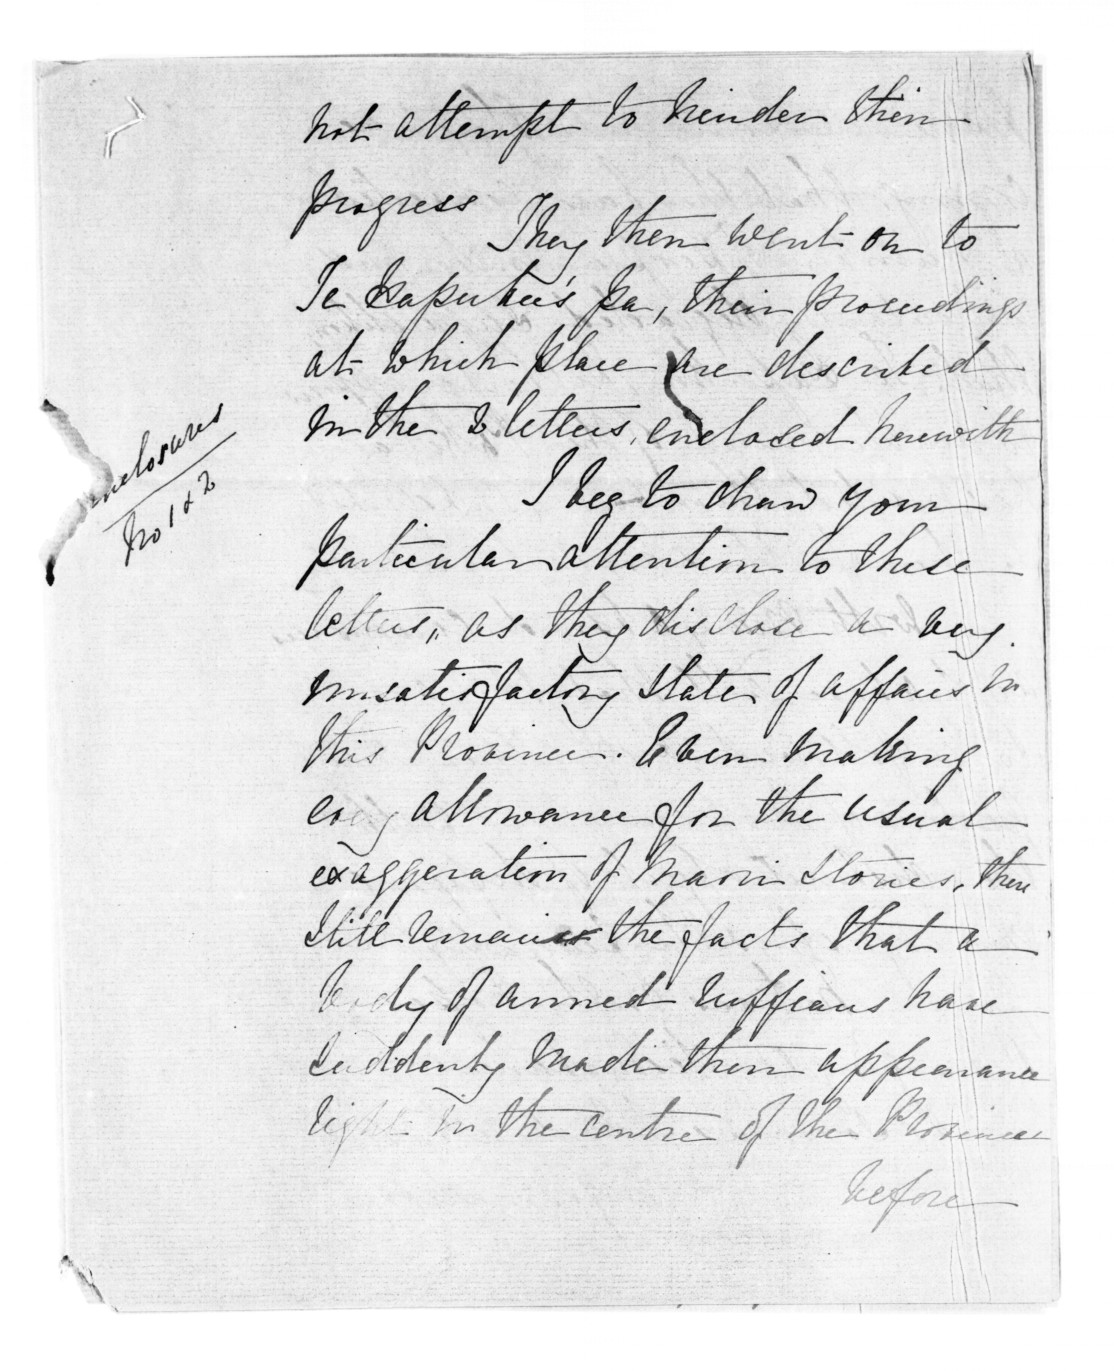 not attempt to hinder their
progress
They then went on to
Te Hapuku's pa, their proceedings
at which place are described
in the 2 letters, enclosed herewith
Enclosures
No 1 & 2
I beg to draw your
particular attention to these
letters, as they disclose a very
unsatisfactory state of affairs in
this Province. Even making
every allowance for the usual
exaggeration of Maori stories, there
still remains the facts that a
body of armed ruffians have
suddenly made their appearance
right in the centre of the Province
before